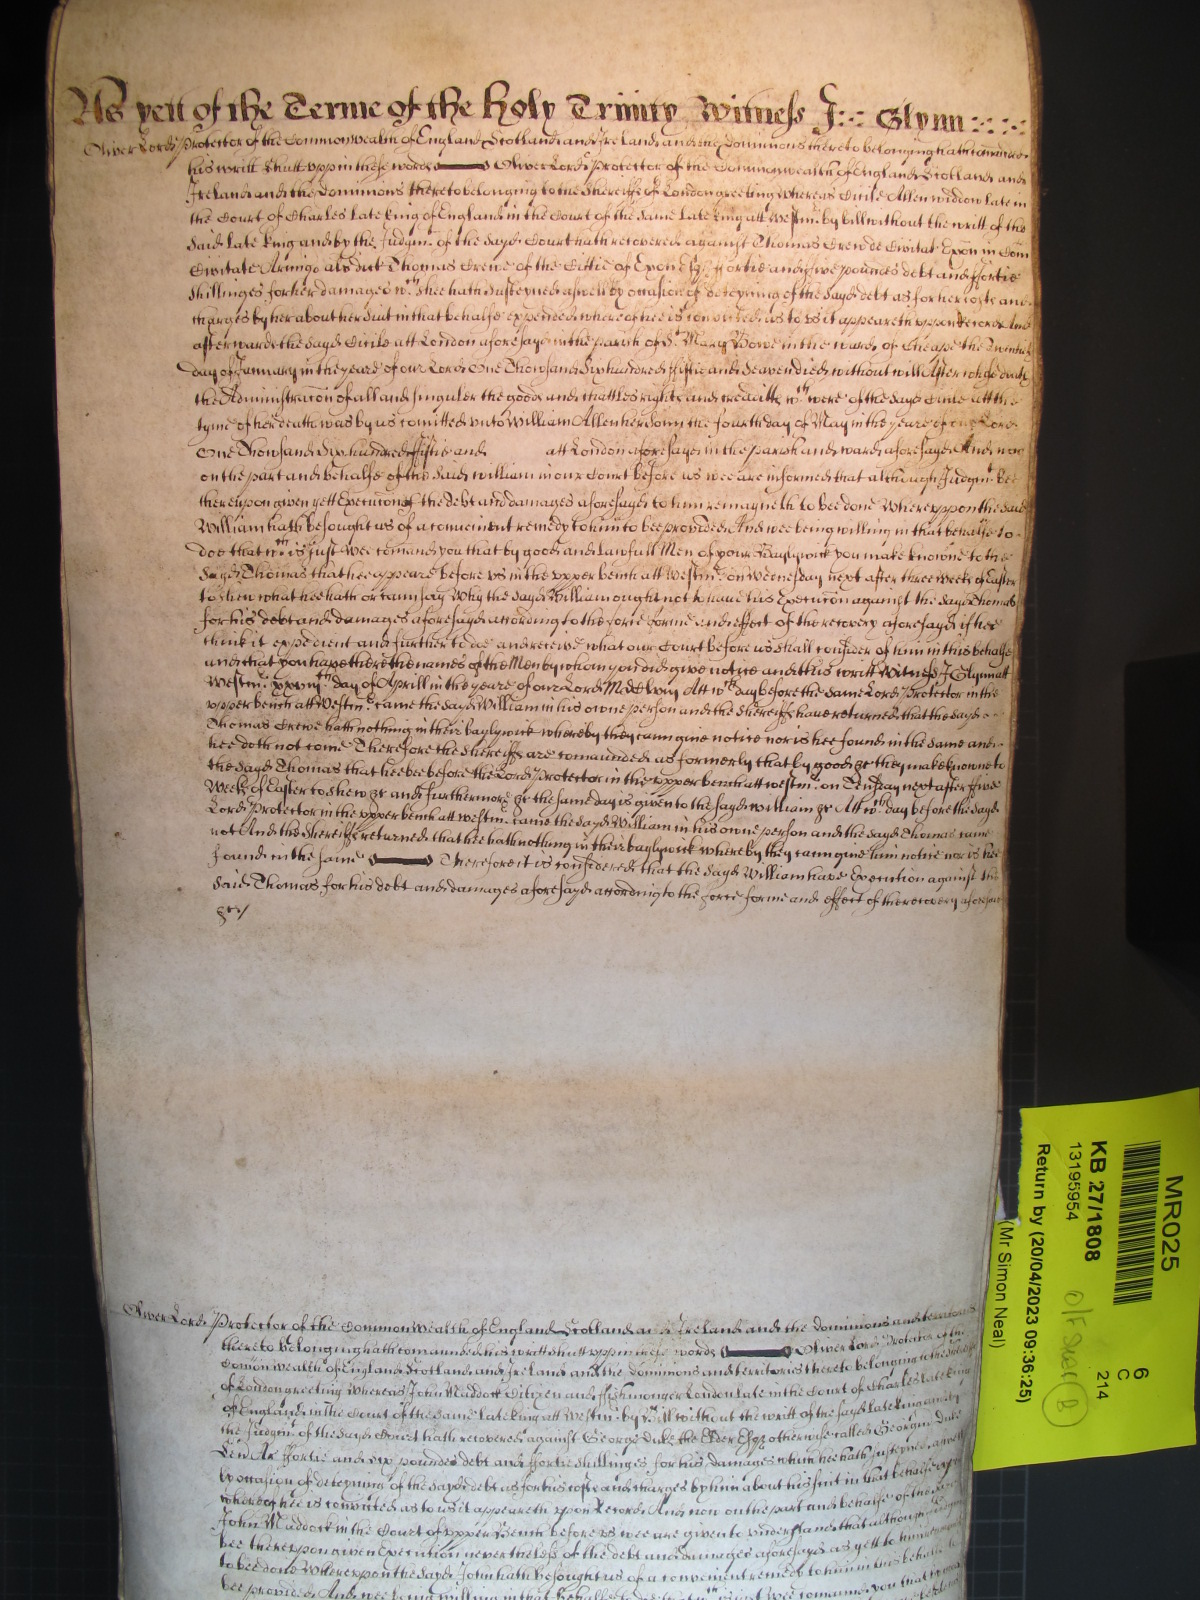 As yett of the Terme of the Holy Trinity Witness J: Glynn
Oliver Lord Protector of the Commonwealth of England Scotland and Ireland and the Dominions thereto belonging hath
his writt shutt upp in these words Oliver Lord Protector of the Commonwealth of England Scotland and
Ireland and the Dominions thereto belonging to the Sheriffs of London greeting Whereas Cicile Allen widdow late in
the Court of Charles late king of England in the Court of the same late king att Westm. by bill without the writt of the
said late king and by the Judgmt. of the sayd Court hath recovered against Thomas Crew de Civitat Exon in Com
Civitate Armigo als dict Thomas Crewe of the Cittie of Exon Esq ffortie and five pounds debt and ffortie
shillinges for her damages wch shee hath susteyned aswell by occasion of deteyning of the sayd debt as for her costs and
charges by her about her suit in that behalfe expended whereof hee is convicted as to us it appeareth uppon Record And
afterwards the sayd Cicile att London aforesayd in the parish of St. Mary Bowe in the ward of Cheape the
day of January in the yeare of our Lord One Thowsand six hundred fiftie and seaven died without will After whose death
the Administracon of all and singuler the goods and chattles rights and creditts wch were of the sayd Cicile att the
tyme of her death was by us comitted unto William Allen her sonn the fourth day of May in the yeare of our Lord
One Thowsand six hundred fiftie and att London aforesayd in the parish and ward aforesayd And now
on the part and behalfe of the said William in our Court before us wee are informed that although Judgmt. bee
thereupon given yett Execucon of the debt and damages aforesayd to him remayneth to bee done Whereuppon the said
William hath besought us of a convenient remedy to him to bee provided And wee being willing in that behalfe to
doe that wch is just Wee comand you that by good and lawfull Men of your Baylywick you make knowne to the
sayd Thomas that hee appeare before us in the upper bench att Westm. on Wednesday next after three weeks of Easter
to shew what hee hath or cann say Why the sayd William ought not to have his Execucon against the sayd Thomas
for his debt and damages aforesayd according to the force forme and effect of the recovery aforesayd if hee
think it expedient and further to doe and receive what our Court before us shall consider of him in this behalfe
and that you have there the names of the Men by whom you did give notice and this writt Witness J Glynn att
Westm. day of Aprill in the yeare of our Lord MDClviij Att wch day before the same Lord Protector in the
upper bench att Westm. came the sayd William in his owne person and the Sheriffs have returned that the sayd
Thomas Crewe hath nothing in their baylywick whereby they cann give notice nor is hee found in the same and
hee doth not come Therefore the Sheriffs are comaunded as formerly that by good &c they make knowne to
the sayd Thomas that hee bee before the Lord Protector in the upper bench att westm. on Tuesday next after five
Weeks of Easter to shew &c and furthermore &c the same day is given to the sayd William &c Att wch day before the sayd
Lord Protector in the upper bench att westm. came the sayd William in his owne person and the sayd Thomas came
not And the Sheriffs returned that hee hath nothing in their baylywick whereby they cann give him notice nor is hee
found in the same Therefore it is considered that the sayd William have Execucon against the
said Thomas for his debt and damages aforesayd according to the force forme and effect of the recovery aforesaid
&c/
Oliver Lord Protector of the Common Wealth of England Scotland and Ireland and the dominions and territories
thereto belonging hath comaunded his writt shutt upp in these words Oliver Lord Protector of the
Comon Wealth of England Scotland and Ireland and the dominions and territories thereto belonging to the
of London greeting Whereas John Maddock Citizen and ffishmonger London late in the Court of Charles late king
of England in the Court of the same late king att Westm. by Bill without the writt of the sayd late king and by
the Judgmt. of the sayd Court hath recovered against George Duke the Elder Esqr otherwise called Georgiu Duke
Sen Ar ffortie and six poundes debt and ffortie shillinges for his damages which hee hath susteyned aswell
by occasion of deteyning of the sayd debt as for his costs and charges by him about his suit in that behalfe
whereof hee is convicted as to us it appeareth upon Record And now on the part and behalfe of the
John Maddock in the Court of upper Bench before us wee are given to understand that although
bee thereuppon given Execution nevertheless of the debt and damages aforesayd as yett to him
to bee done Whereupon the sayd John hath besought us of a convenient remedy to him in this behalfe to
bee provided And wee being willing in that behalfe to wch is just Wee comand you that by
MR025
KB 27/1808
13195954
Return by (20/04/2023 09:36:25)
(Mr Simon Neal)
6
C
214
B